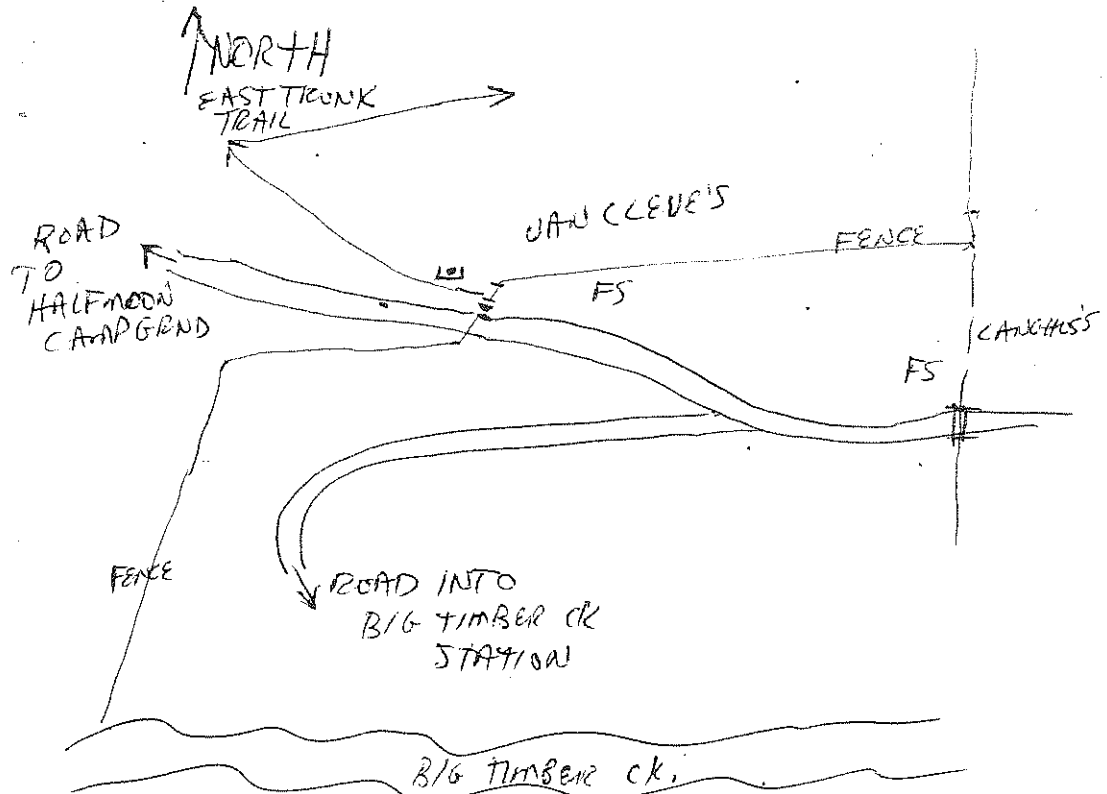 NORTH
EAST TRUNK
TRAIL
ROAD
TO
HALFMOON
CAMPGRND
VAN CLEVE'S
FENCE
FS
FS
FENCE
ROAD INTO
BIG TIMBER CK
STATION
BIG TIMBER CK.